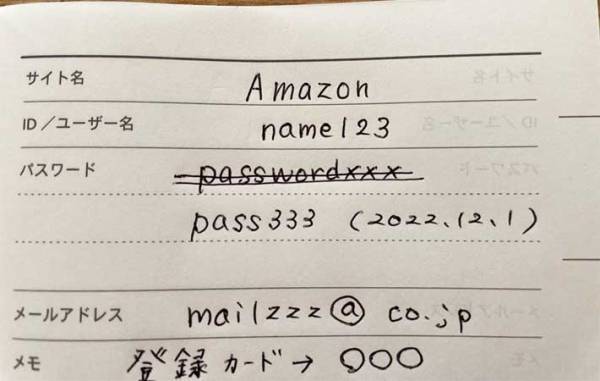 サイト名 Amazon
ID/ユーザー名 name123
パスワード passwordxxx
pass333 (2022.12.1)
メールアドレス mailzzz@co.jp
メモ 登録カード→〇〇〇